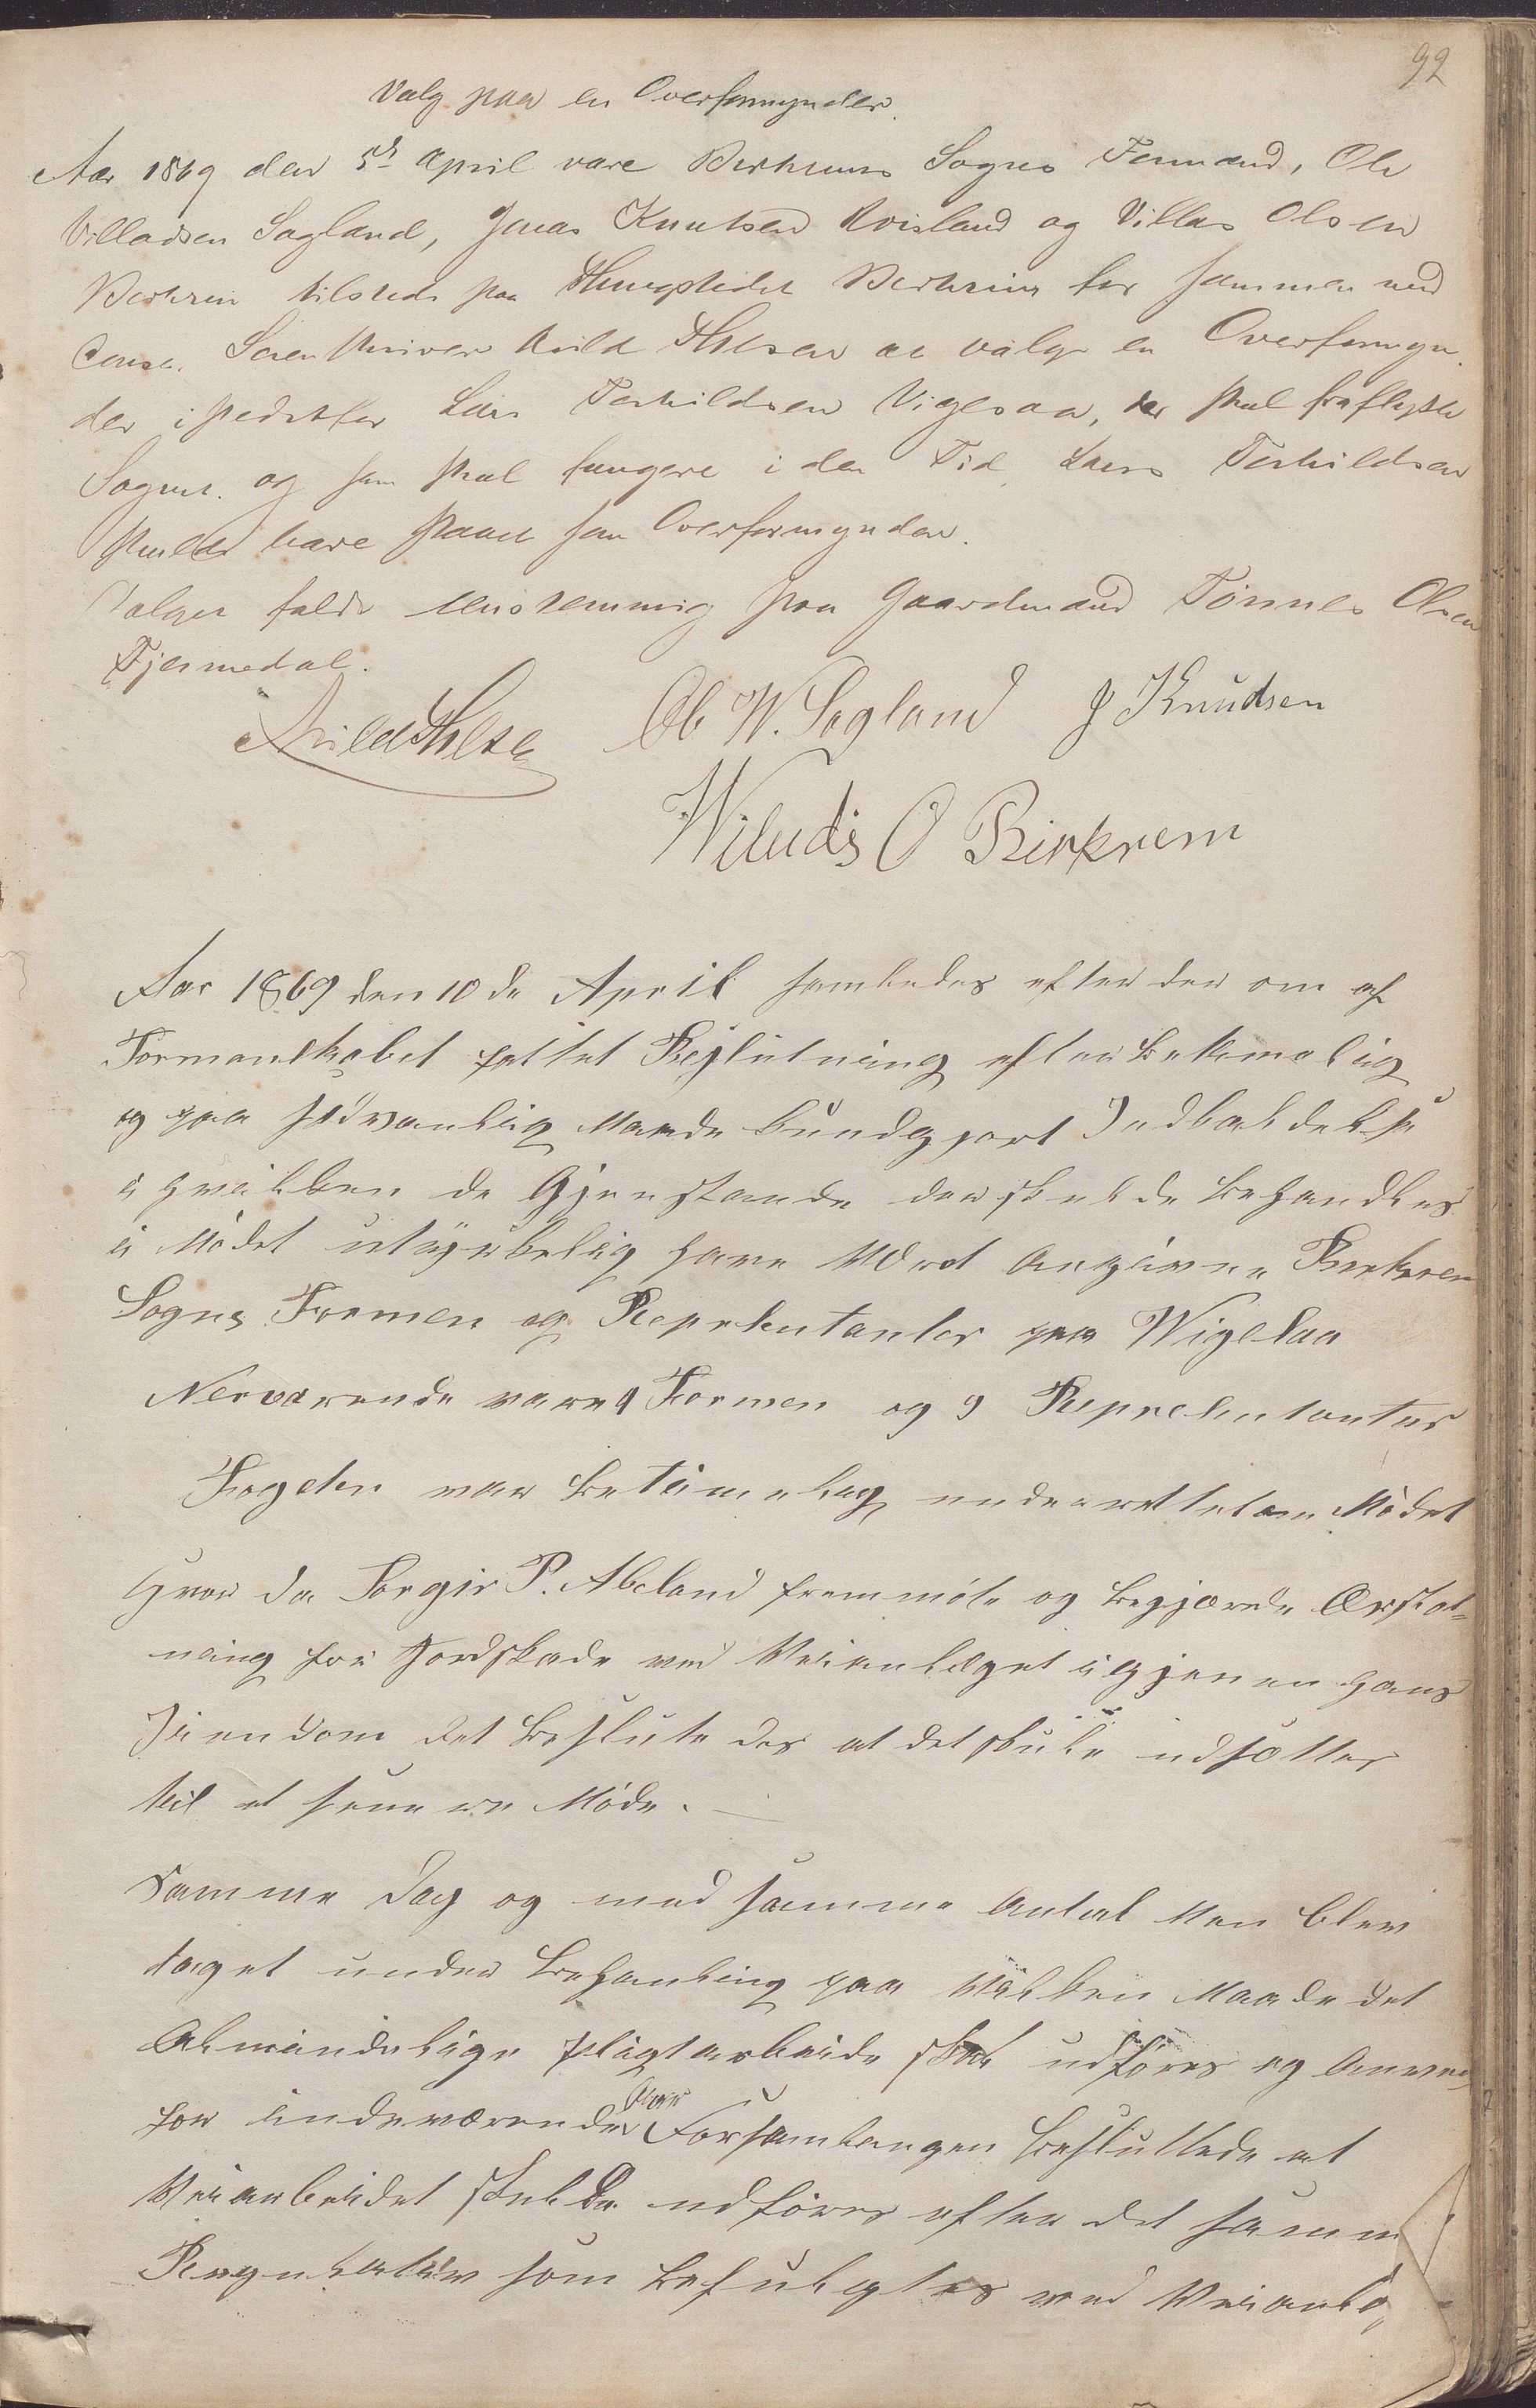 92
Valg paa en Overformynder.
Aar 1869 den 5te April vare Birkrems Sogns Formænd, Ole
Villadsen Sagland, Jonas Knutsen Kvisland og Villas Olsen
Birkrem tilstede paa Thingstedet Birkrem for sammen med
Const. Sorenskriver Arild Thilsen at vælge en Overformyn-
der istedetfor Lars Torkildsen Vigesaa, der skal fraflytte
Sognet. og som skal fungere i den Tid Lars Torkildsen
skulde have staaet som Overformynder.
Valget faldt eenstemmig paa Gaardmand Tönnes Olsen
Fjermedal.
Ole W. Sagland J Knudsen
Wiluds O Birkrem
Aar 1869 den 10de April samledes efter der om af
Formandskabet fattet Beslutning efter bekvemelig
og paa sedvanlig Maade kundgjort Indkaldelse
i hvilken de Gjenstande der skulde behandles
i Mödet utrykkelig have været Angivne Birkrem
Sogns Formen og Reprsentanter paa Wigesaa
Nerværende vare 4 Formen og 9 Reprsentanter
Fogden var betimelig underrettet om Mödet
Hvor da Borgir P. Aboland fremmöte og begjærede Erstat-
ning for Jordskade ved Veianlæget igjennem hans
Eiendom det beslutedes at det skule udsættes
til et senere Möde.
Samme Dag og med samme Antal Men blev
taget under Behanling paa vilken Maade det
Almindelige Pligtarbeide skal udföres og Anven
for indeværende Aar Forsamlingen besluttede at
Veiarbeidet skulde udföres efter det samm
Regulativ som befulgtes ved Veianlæ,